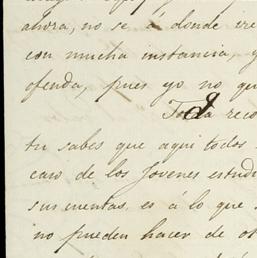 ahora, no se á donde ire
con mucha instancia, y
ofenda, pues yo no que
Toda reco
tu sabes que aqui todos
caso de los Jovenes estudi
sus cuentas es á lo que
no pueden hacer de ot